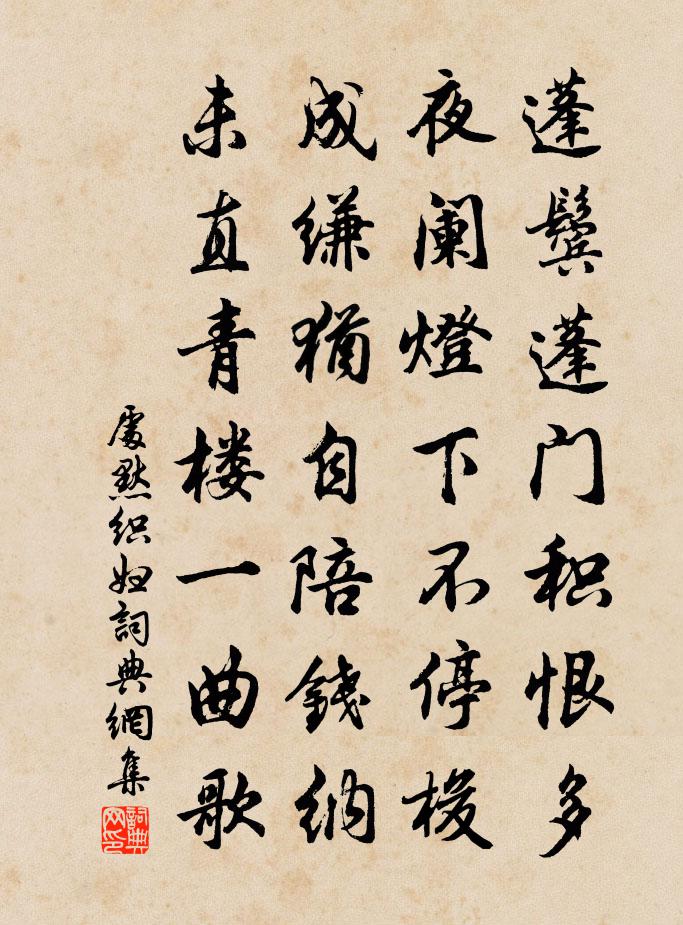 蓬鬓蓬门积恨多
夜阑燈下不停梭
成缣猶自陪錢纳
未直青楼一曲歌
處默织妇詞典網集
詞典网印